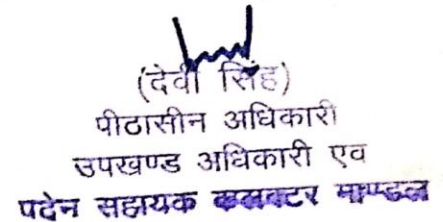 (देवी सिंह)
पीठासीन अधिकारी
उपखण्ड अधिकारी एव
पदेन सहायक कलक्टर माण्डल